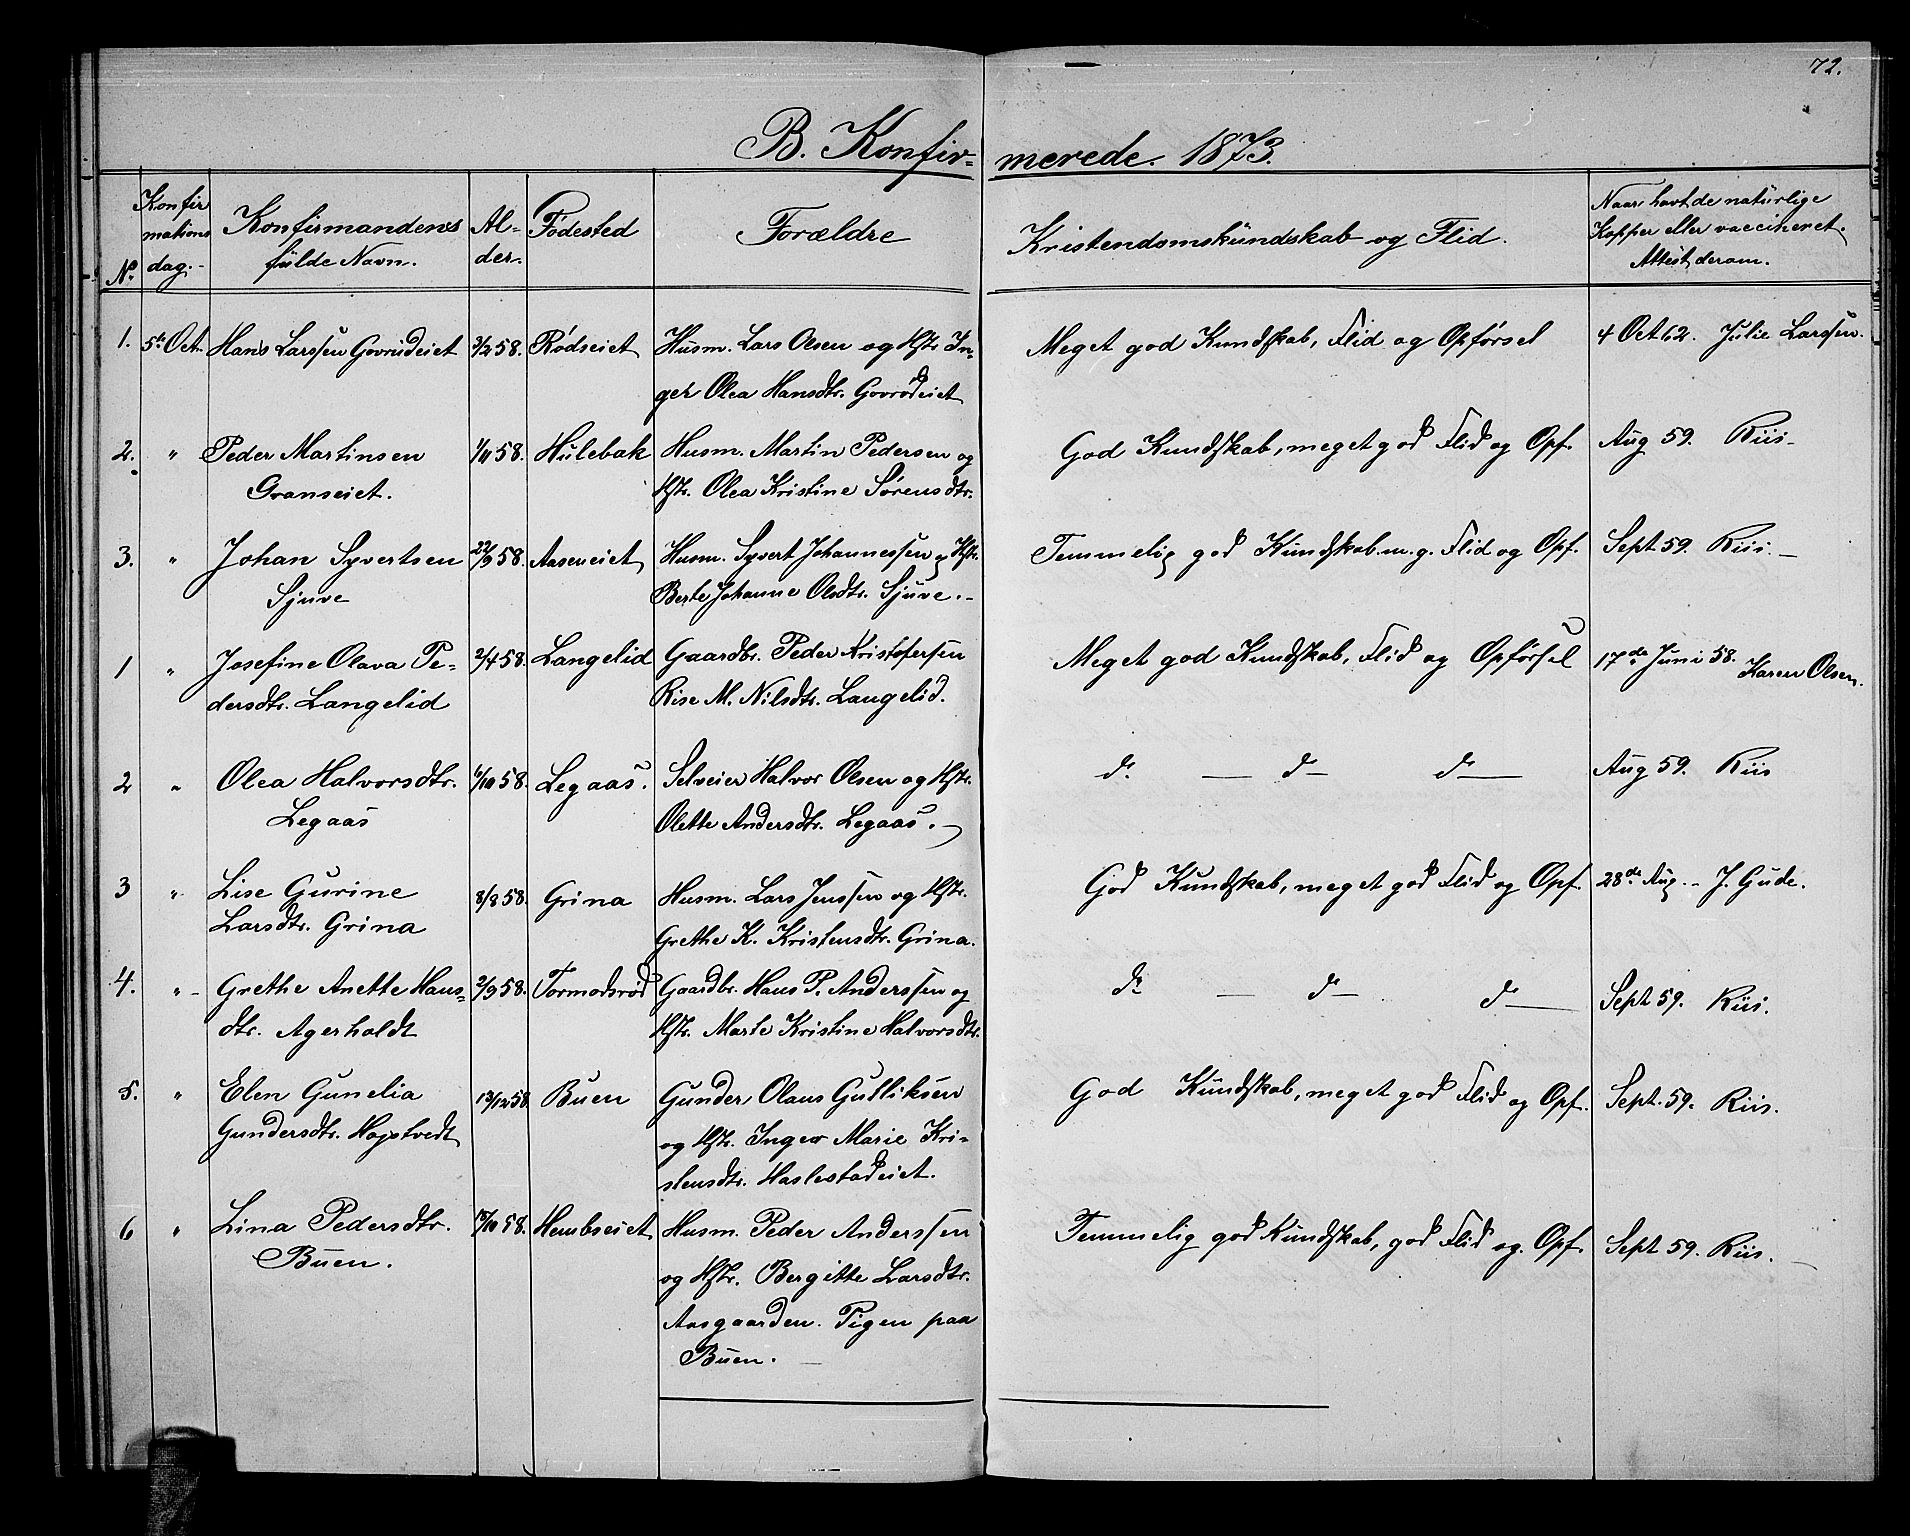 72.
B. Konfirmerede. 1873.
No. Konfirmations dag. Konfirmandens fulde Navn. Alder. Fødested Forældre Kristendomskundskab og Flid. Naar havt de naturlige Kopper eller vaccineret. Attest derom.
1. 5te Oct. Hans Larssen Govrudeiet 3/2 58. Rødseiet Husm. Lars Olsen og Hstr. In-
ger Olea Hansdtr. Govrødeiet
Meget god Kundskab, Flid og Opførsel 4 Oct 62. Julie Larssen.
2. " Peder Martinsen 1/11 58. Hulebak Husm. Martin Pedersen og
Granseiet. Hstr. Olea Kristine Sørensdtr.
God Kundskab, meget god Flid og Opf. Aug 59. Riis-
3. " Johan Syvertsen 22/9 58. Aaseneiet Husm. Syvert Johannessen og Hstr.
Sjuve Berte Johanne Olsdtr. Sjuve.-
Temmelig god Kundskab. m. g. Flid og Opf. Sept 59. Riis.-
1 " Josefine Olava Pe- 2/4 58. Langelid Gaardbr. Peder Kristofersen
dersdtr. Langelid Rise M. Nilsdtr. Langelid.
Meget god Kundskab, Flid og Opførsel 17de Juni 58. Karen Olsen.
2 " Olea Halvorsdtr. 6/10 58. Legaas. Selveier Halvor Olsen og Hstr.
Legaas Olette Andersdtr. Legaas.-
do - do - do - Aug 59. Riis
3 " Lise Gurine 8/8 58. Grina Husm. Lars Jenssen og Hstr.
Larsdtr. Grina Grethe K. Kristensdtr. Grina.
God Kundskab, meget god Flid og Opf. 28de Aug.- J. Gude.
4. " Grethe Anette Hans- 2/9 58. Tormodsrød Gaardbr. Hans P. Anderssen og
dtr. Agerholdt Hstr. Marte Kristine Halvorsdtr.
do - do - do - Sept 59. Riis.
5. " Elen Gunelia 13/12 58. Buen Gunder Olaus Gulliksen
Gundersdtr. Hajstvedt og Hstr. Inger Marie Kri-
stensdtr. Haslestadeiet.
God Kundskab, meget god Flid og Opf. Sept. 59. Riis.
6 " Lina Pedersdtr. 58. Hembseiet Husm. Peder Anderssen
Buen. og Hstr. Bergitte Larsdtr.
Aasgaarden. Pigen paa
Buen.
Temmelig god Kundskab, god Flid og. Opf. Sept 59. Riis.